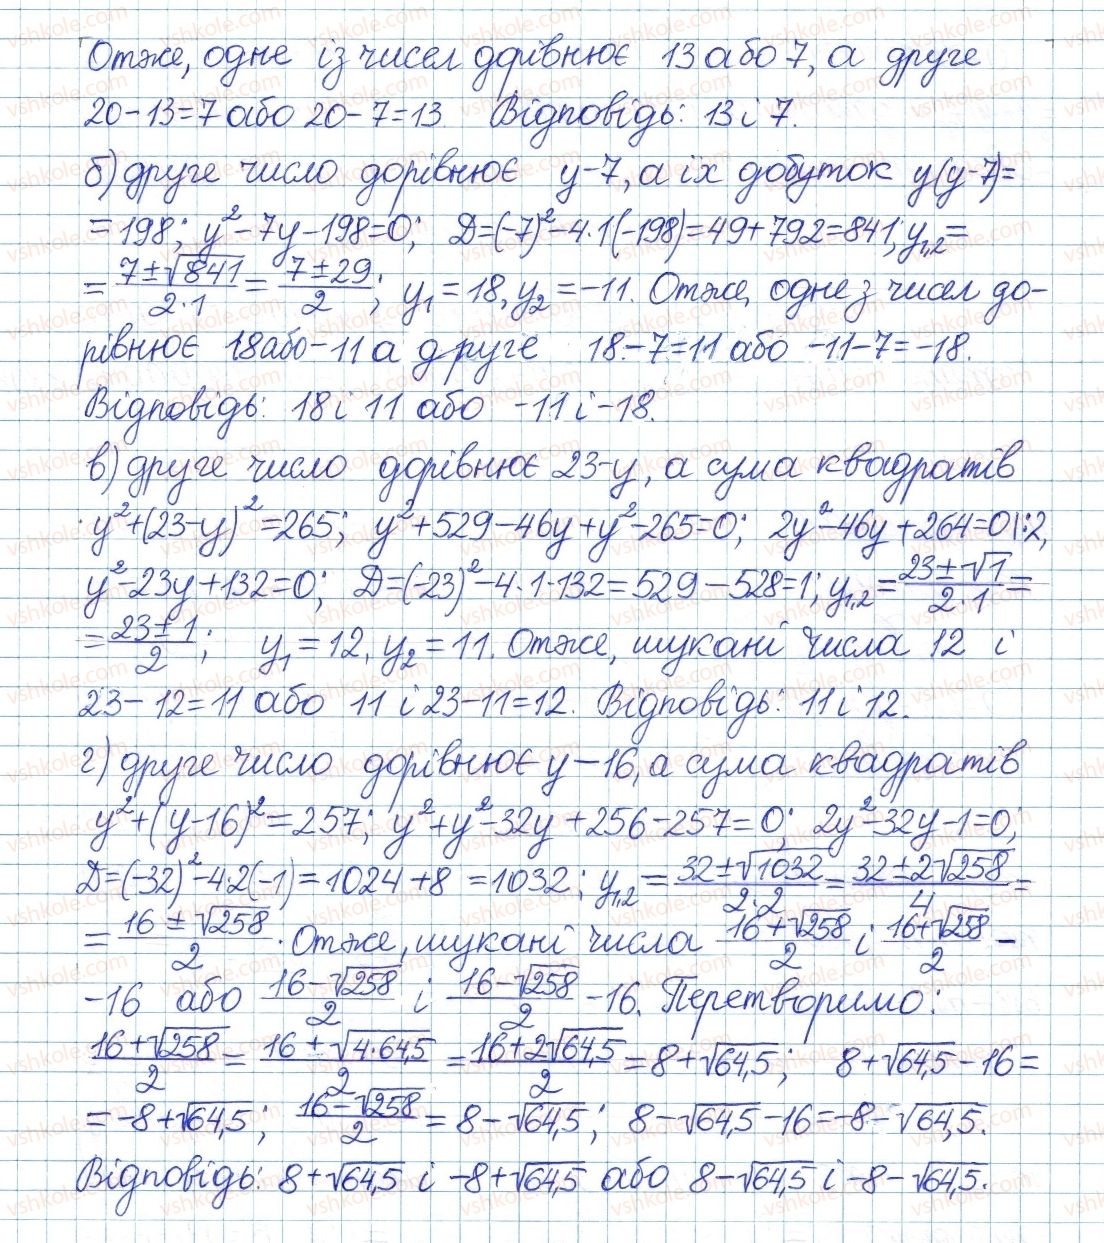 Отже, одне із чисел дорівнює 13 або 7, а друге
20-13=7 або 20-7=13. Відповідь: 13 і 7.
б) друге число дорівнює y-7, а їх добуток y(y-7)=
=198; y²-7y-198=0; D=(-7)²-4·1(-198)=49+792=841; y₁,₂=
=(7±√841)/(2·1)=(7±29)/2; y₁=18, y₂=-11. Отже, одне з чисел до-
рівнює 18 або -11 а друге 18-7=11 або -11-7=-18.
Відповідь: 18 і 11 або -11 і -18.
в) друге число дорівнює 23-y, а сума квадратів
y²+(23-y)²=265; y²+529-46y+y²-265=0; 2y²-46y+264=0|:2,
y²-23y+132=0; D=(-23)²-4·1·132=529-528=1; y₁,₂=(23±√1)/(2·1)=
=(23±1)/2; y₁=12, y₂=11. Отже, шукані числа 12 і
23-12=11 або 11 і 23-11=12. Відповідь: 11 і 12.
г) друге число дорівнює y-16, а сума квадратів
y²+(y-16)²=257; y²+y²-32y+256-257=0; 2y²-32y-1=0;
D=(-32)²-4·2(-1)=1024+8=1032; y₁,₂=(32±√1032)/(2·2)=(32±2√258)/4=
=(16±√258)/2. Отже, шукані числа (16+√258)/2 і (16+√258)/2-
-16 або (16-√258)/2 і (16-√258)/2-16. Перетворимо:
(16+√258)/2=(16±√4·64,5)/2=(16+2√64,5)/2=8+√64,5; 8+√64,5-16=
=-8+√64,5; (16-√258)/2=8-√64,5; 8-√64,5-16=-8-√64,5.
Відповідь: 8+√64,5 і -8+√64,5 або 8-√64,5 і -8-√64,5.